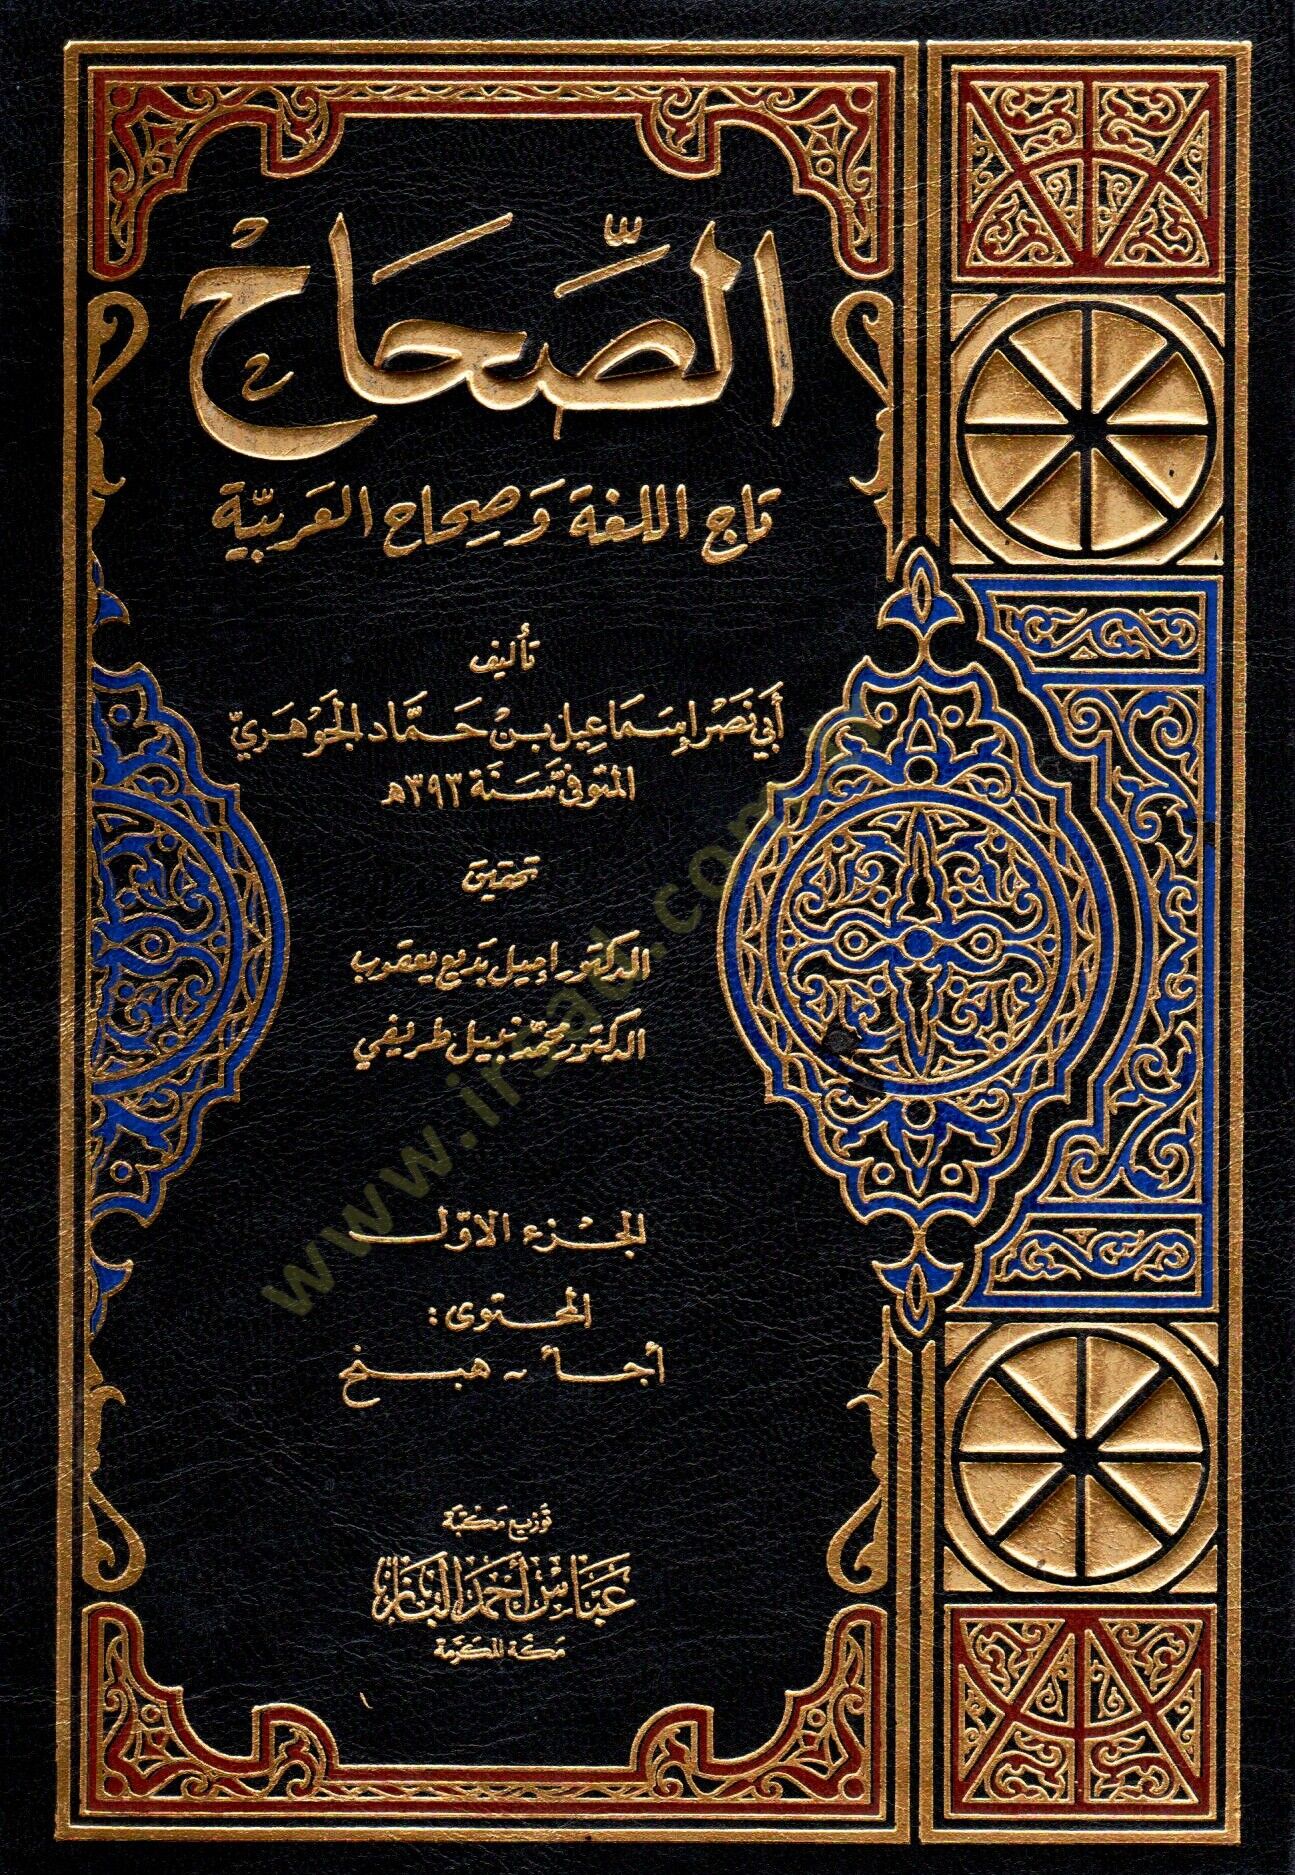 الصِّحَاحْ
تاج اللغة وَصِحاح العَربيّة
تأليف
أَبي نَصر إسمَاعيل بن حَمَّاد الجَوهَريّ
المتوفىّ سَنَة ٣٩٣ھ
تحقيق
الدكتور إميل بَديع يعقوب
الدكتور محمّد نبيل طريفي
الجُزء الأوّل
المحتوى:
أجأ - هبنخ
تَوزيع مَكتبة
عَبّاس أحمَد البَاز
مَكّة المكرّمة
www.irsad.com